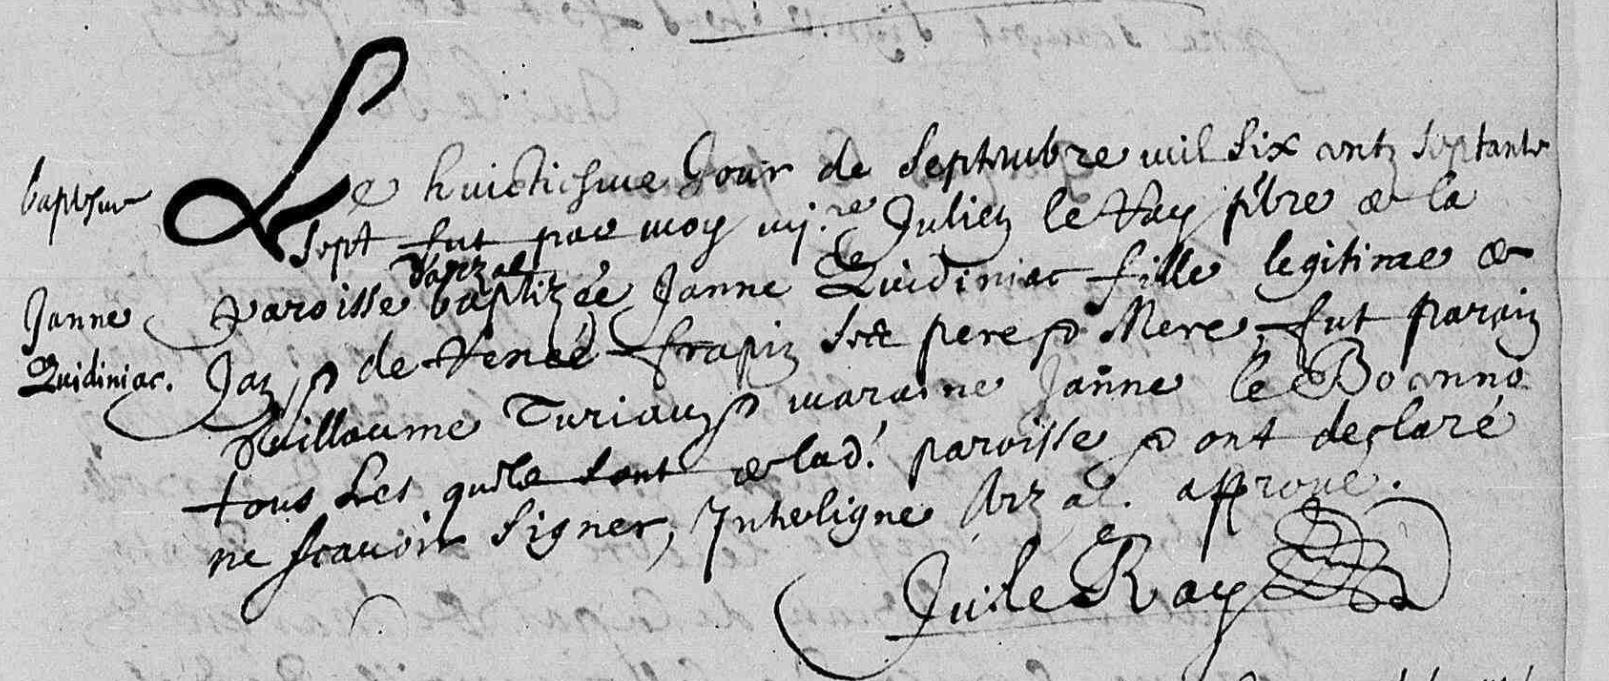 baptesme
Janne
Quidiniac.
Le huictiesme Jour de septembre mil six centz septante
sept fut par moy mi.re Julien le Ray pbre de la
d'arzal
Paroisse baptizée Janne Quidiniac fille legitime de
Jan & de Renée frapin ses pere & Mere, fut parain
Guillaume Turiau & maraine Janne le
tous les quels sont de lad. paroisse & ont declaré
ne scavoir signer, Interligne Arzal. approuve.
Jul le Ray